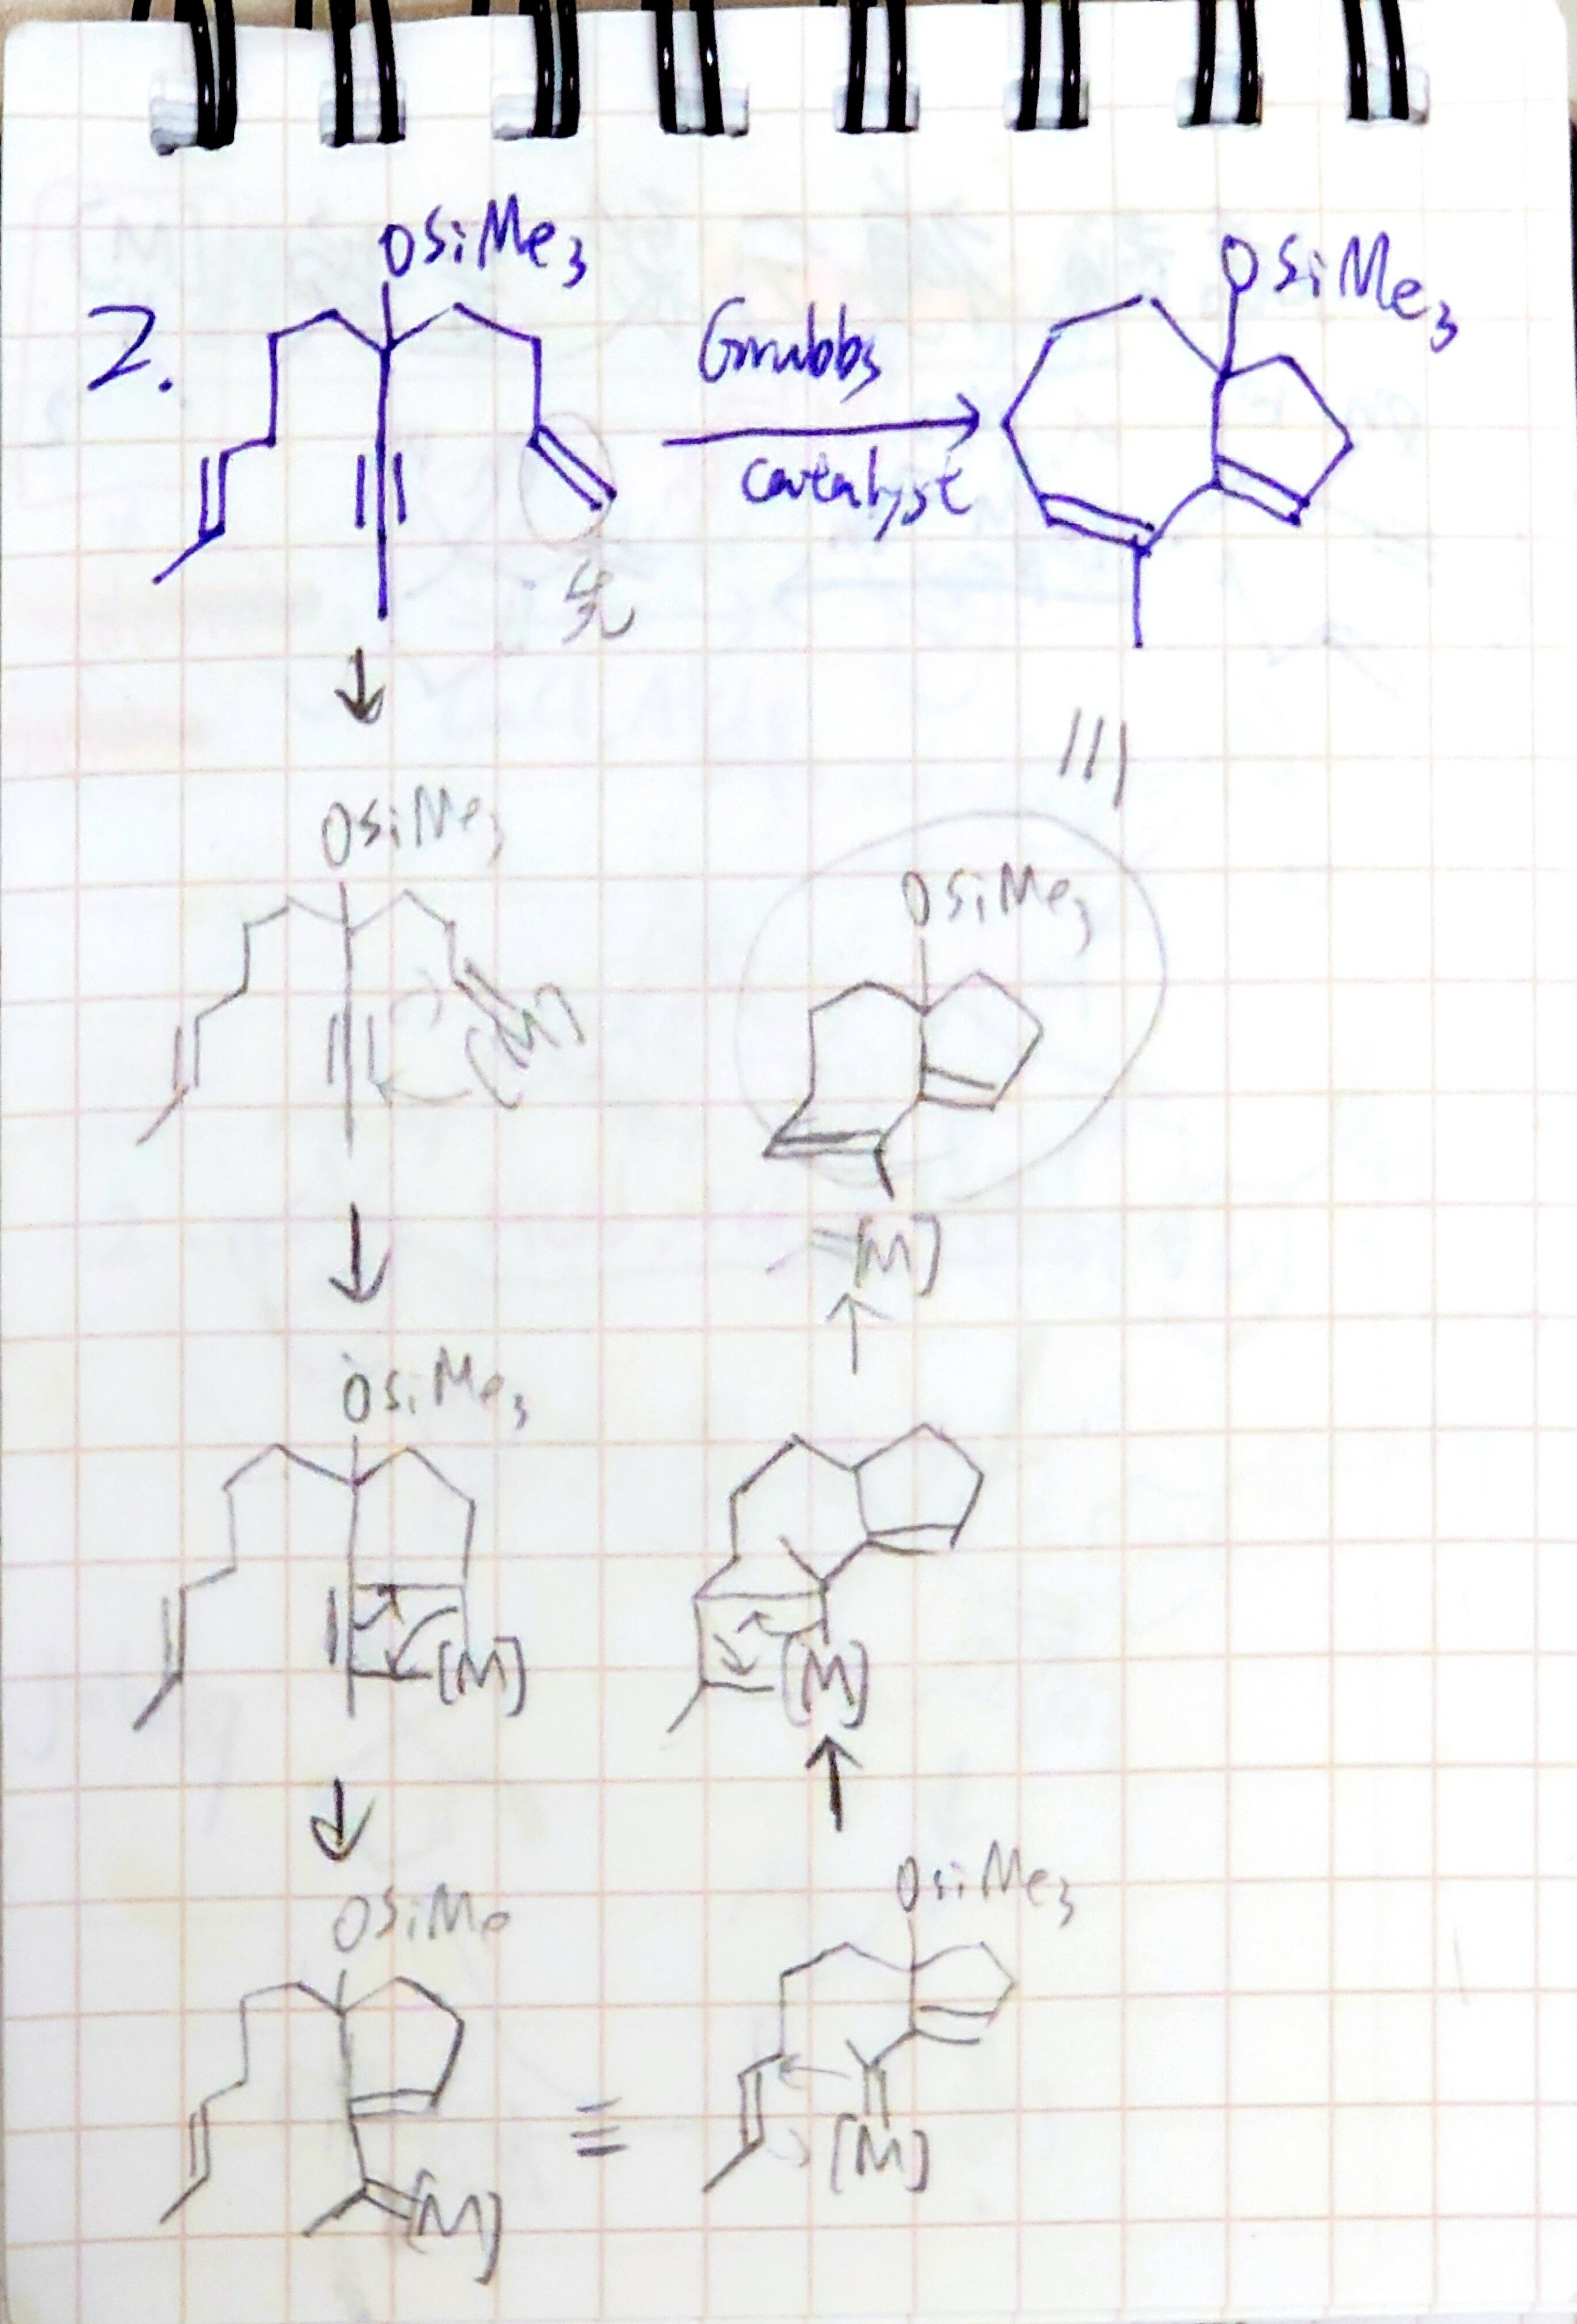 2.
OSiMe3
Grubbs
catalyst
OSiMe3
先
OSiMe3
[M]
OSiMe3
[M]
OSiMe3
[M]
[M]
OSiMe
OSiMe3
[M]
[M]